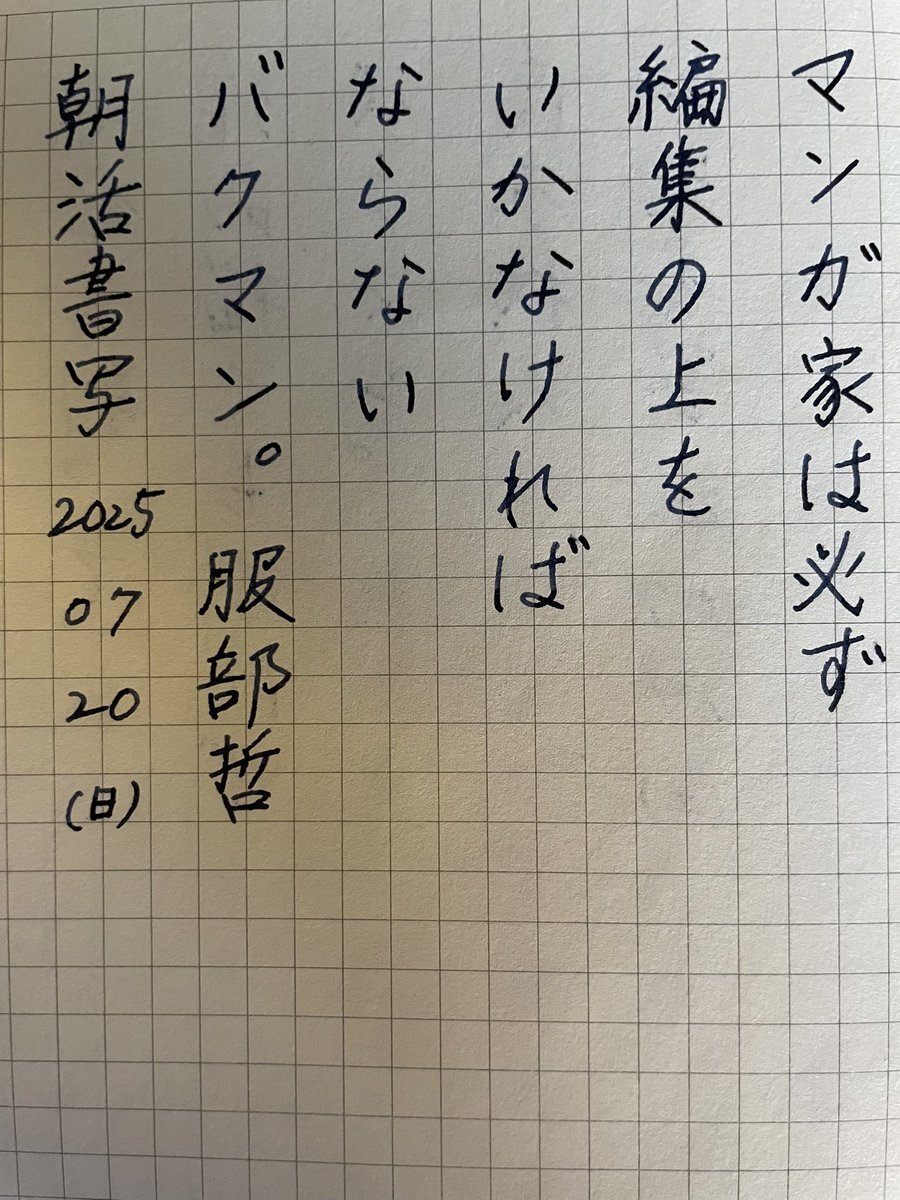 マンガ家は必ず
編集の上を
いかなければ
ならない
バクマン。 服部哲
朝活書写 2025 07 20 (日)